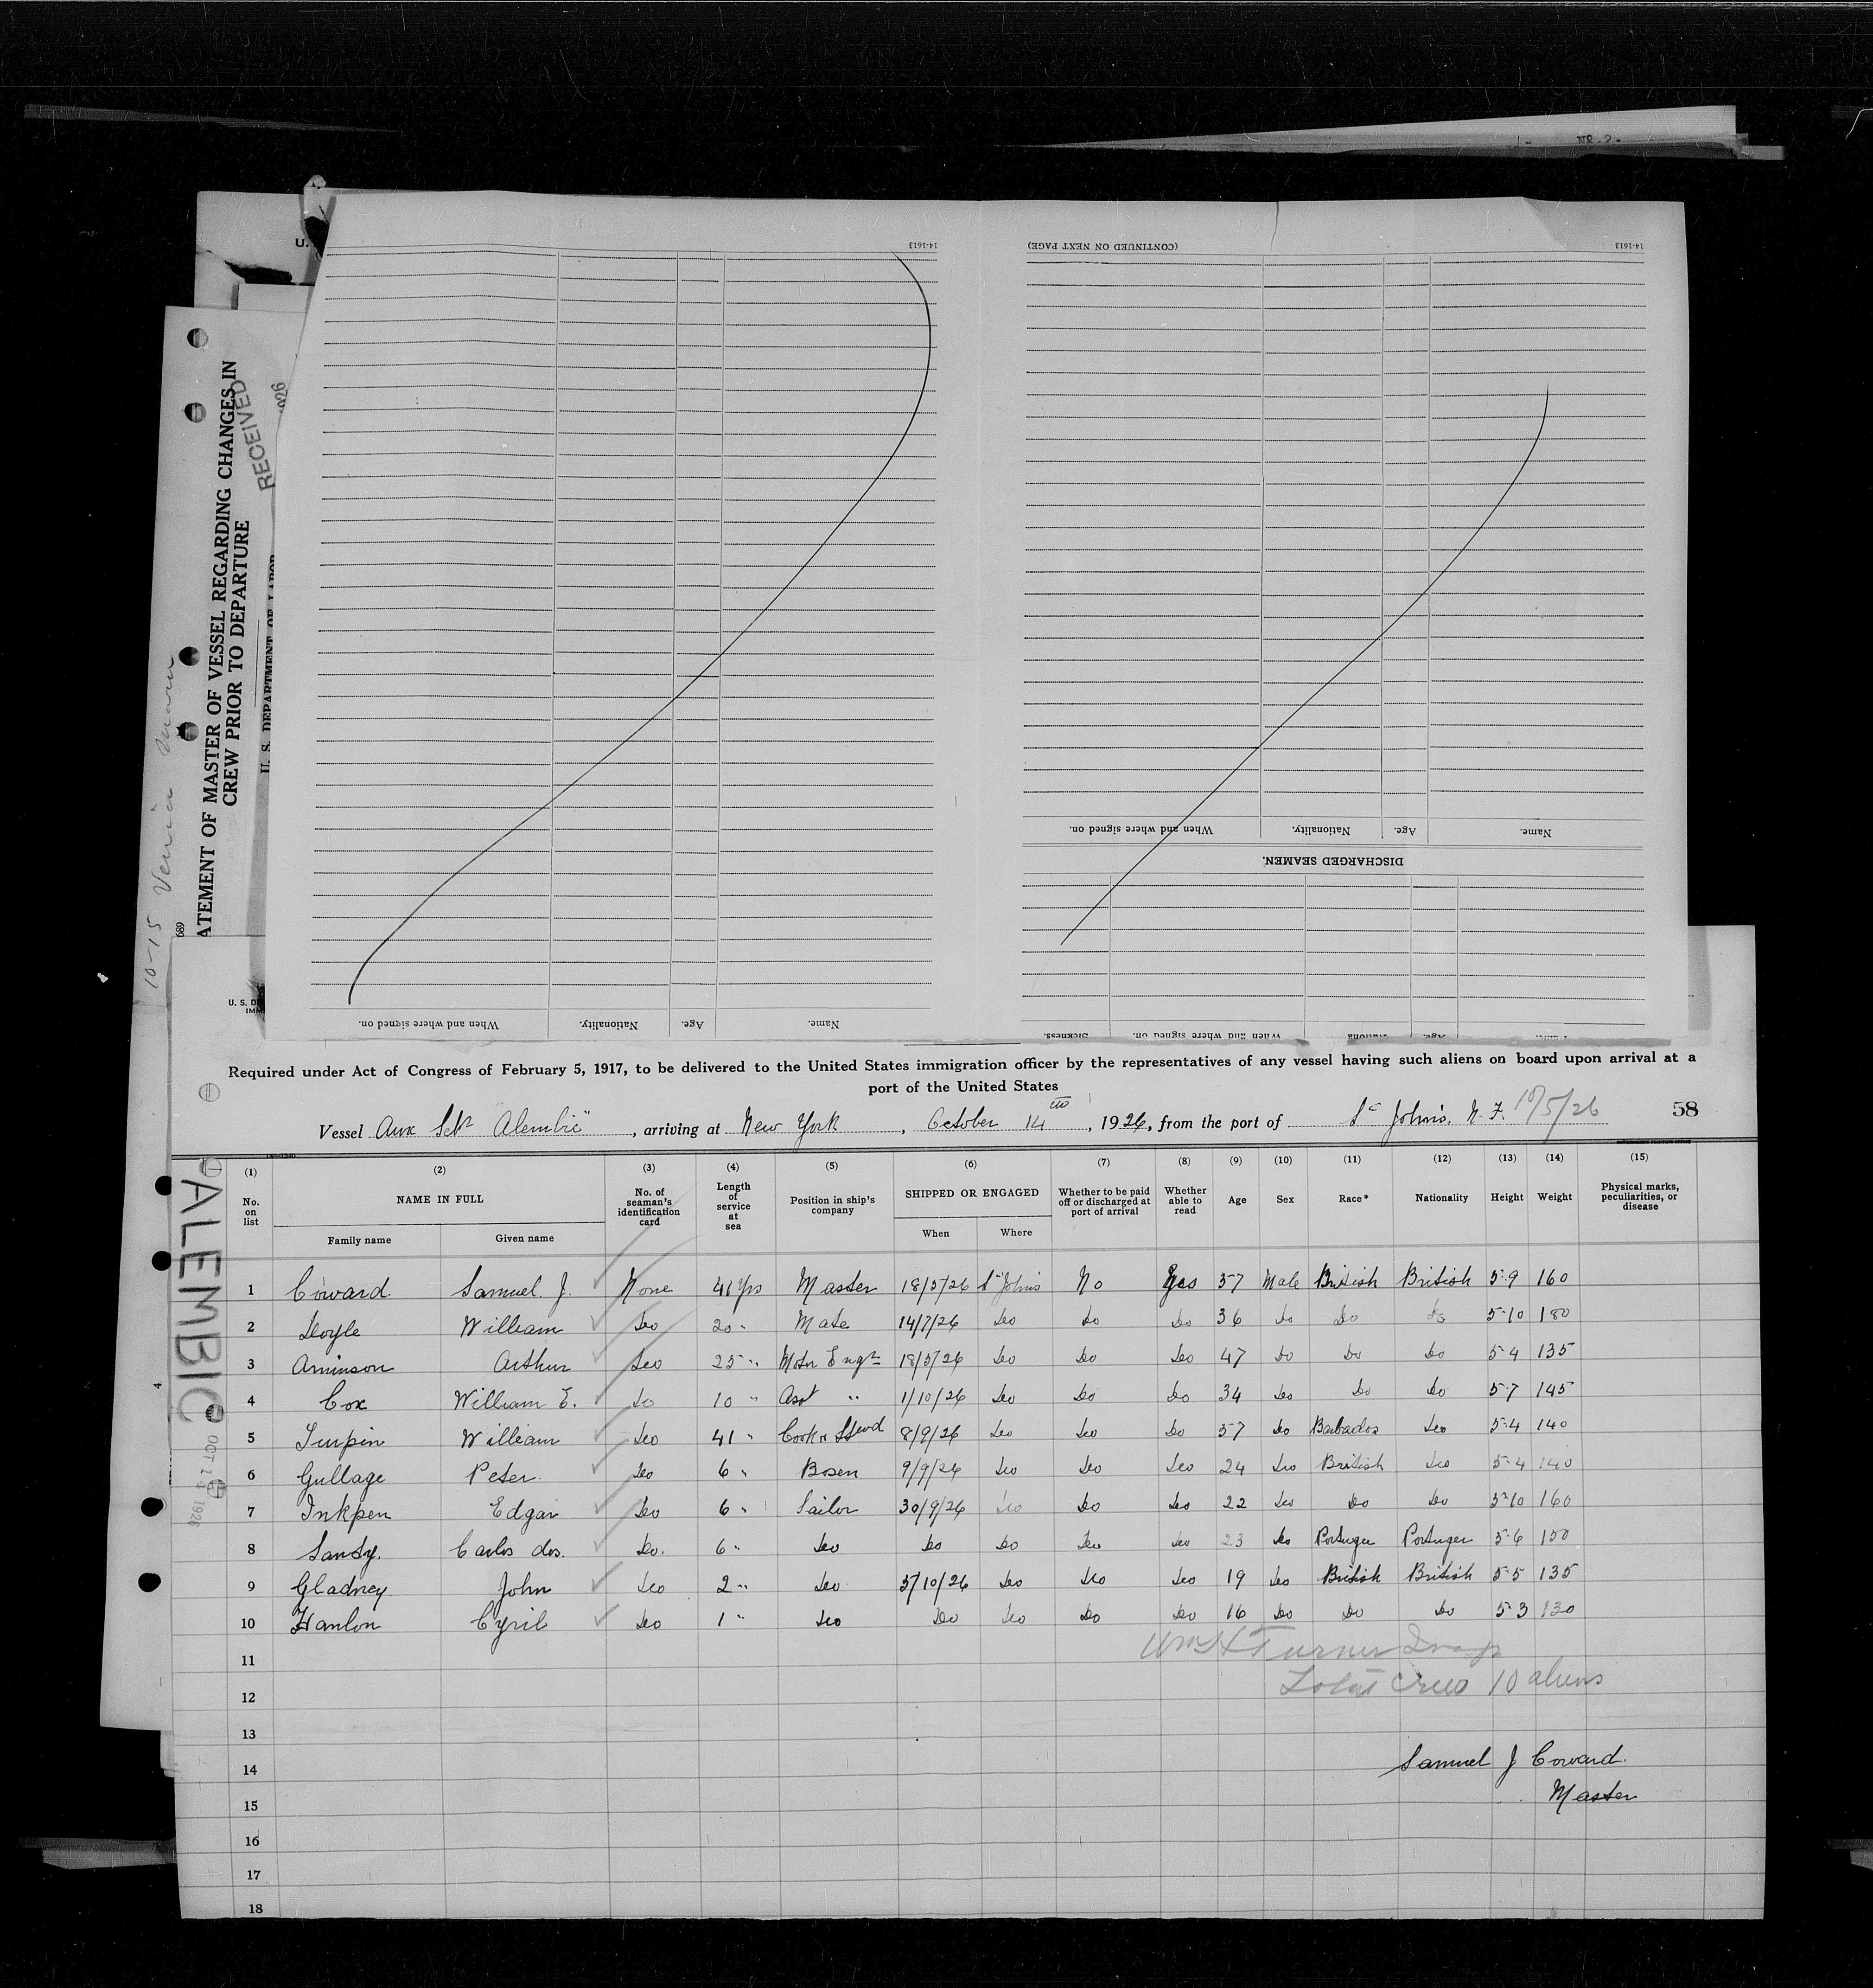 No. 2.
14-1613
(CONTINUED ON NEXT PAGE)
14-1613
When and where signed on.
Nationality.
Age.
Name.
DISCHARGED SEAMEN.
When and where signed on.
Nationality.
Age.
Name.
Sickness.
When and where signed on.
Age.
ATEMENT OF MASTER OF VESSEL REGARDING CHANGES IN
CREW PRIOR TO DEPARTURE
RECEIVED
U. S. DEPARTMENT OF LABOR
689
10-15
U. S. D
IMM
Required under Act of Congress of February 5, 1917, to be delivered to the United States immigration officer by the representatives of any vessel having such aliens on board upon arrival at a
port of the United States
Vessel Aux Schr "Alembic", arriving at New York, October 14th, 1926, from the port of St Johns. N. F. 10/5/26 58
ALEMBIC
OCT 1 1926
4
(1) (2) (3) (4) (5) (6) (7) (8) (9) (10) (11) (12) (13) (14) (15)
No. on list NAME IN FULL No. of seaman's identification card Length of service at sea Position in ship's company SHIPPED OR ENGAGED Whether to be paid off or discharged at port of arrival Whether able to read Age Sex Race* Nationality Height Weight Physical marks, peculiarities, or disease
Family name Given name When Where
1 Coward Samuel J. None 41 Yrs Master 18/5/26 St Johns No Yes 57 Male British British 5-9 160
2 Doyle William Do 20 " Mate 14/7/26 Do Do Do 36 Do Do Do 5-10 180
3 Aminson Arthur Do 25 " Motor Engr 18/5/26 Do Do Do 47 Do Do Do 5-4 135
4 Cox William E. Do 10 " Asst " 1/10/26 Do Do Do 34 Do Do Do 5-7 145
5 Turpin William Do 41 " Cook & Stewd 8/9/26 Do Do Do 57 Do Barbados Do 5-4 140
6 Gullage Peter Do 6 " Bosen 9/9/26 Do Do Do 24 Do British Do 5-4 140
7 Inkpen Edgar Do 6 " Sailor 30/9/26 Do Do Do 22 Do Do Do 5-10 160
8 Sandy. Carlos dos. Do. 6 " Do Do Do Do Do 23 Do Portugee Portugee 5-6 150
9 Gladney John Do 2 " Do 5/10/26 Do Do Do 19 Do British British 5-5 135
10 Hanlon Cyril Do 1 " Do Do Do Do Do 16 Do Do Do 5-3 130
11 Wm H Turner Insp
12 Total Crew 10 aliens
13
14 Samuel J Coward.
15 Master
16
17
18